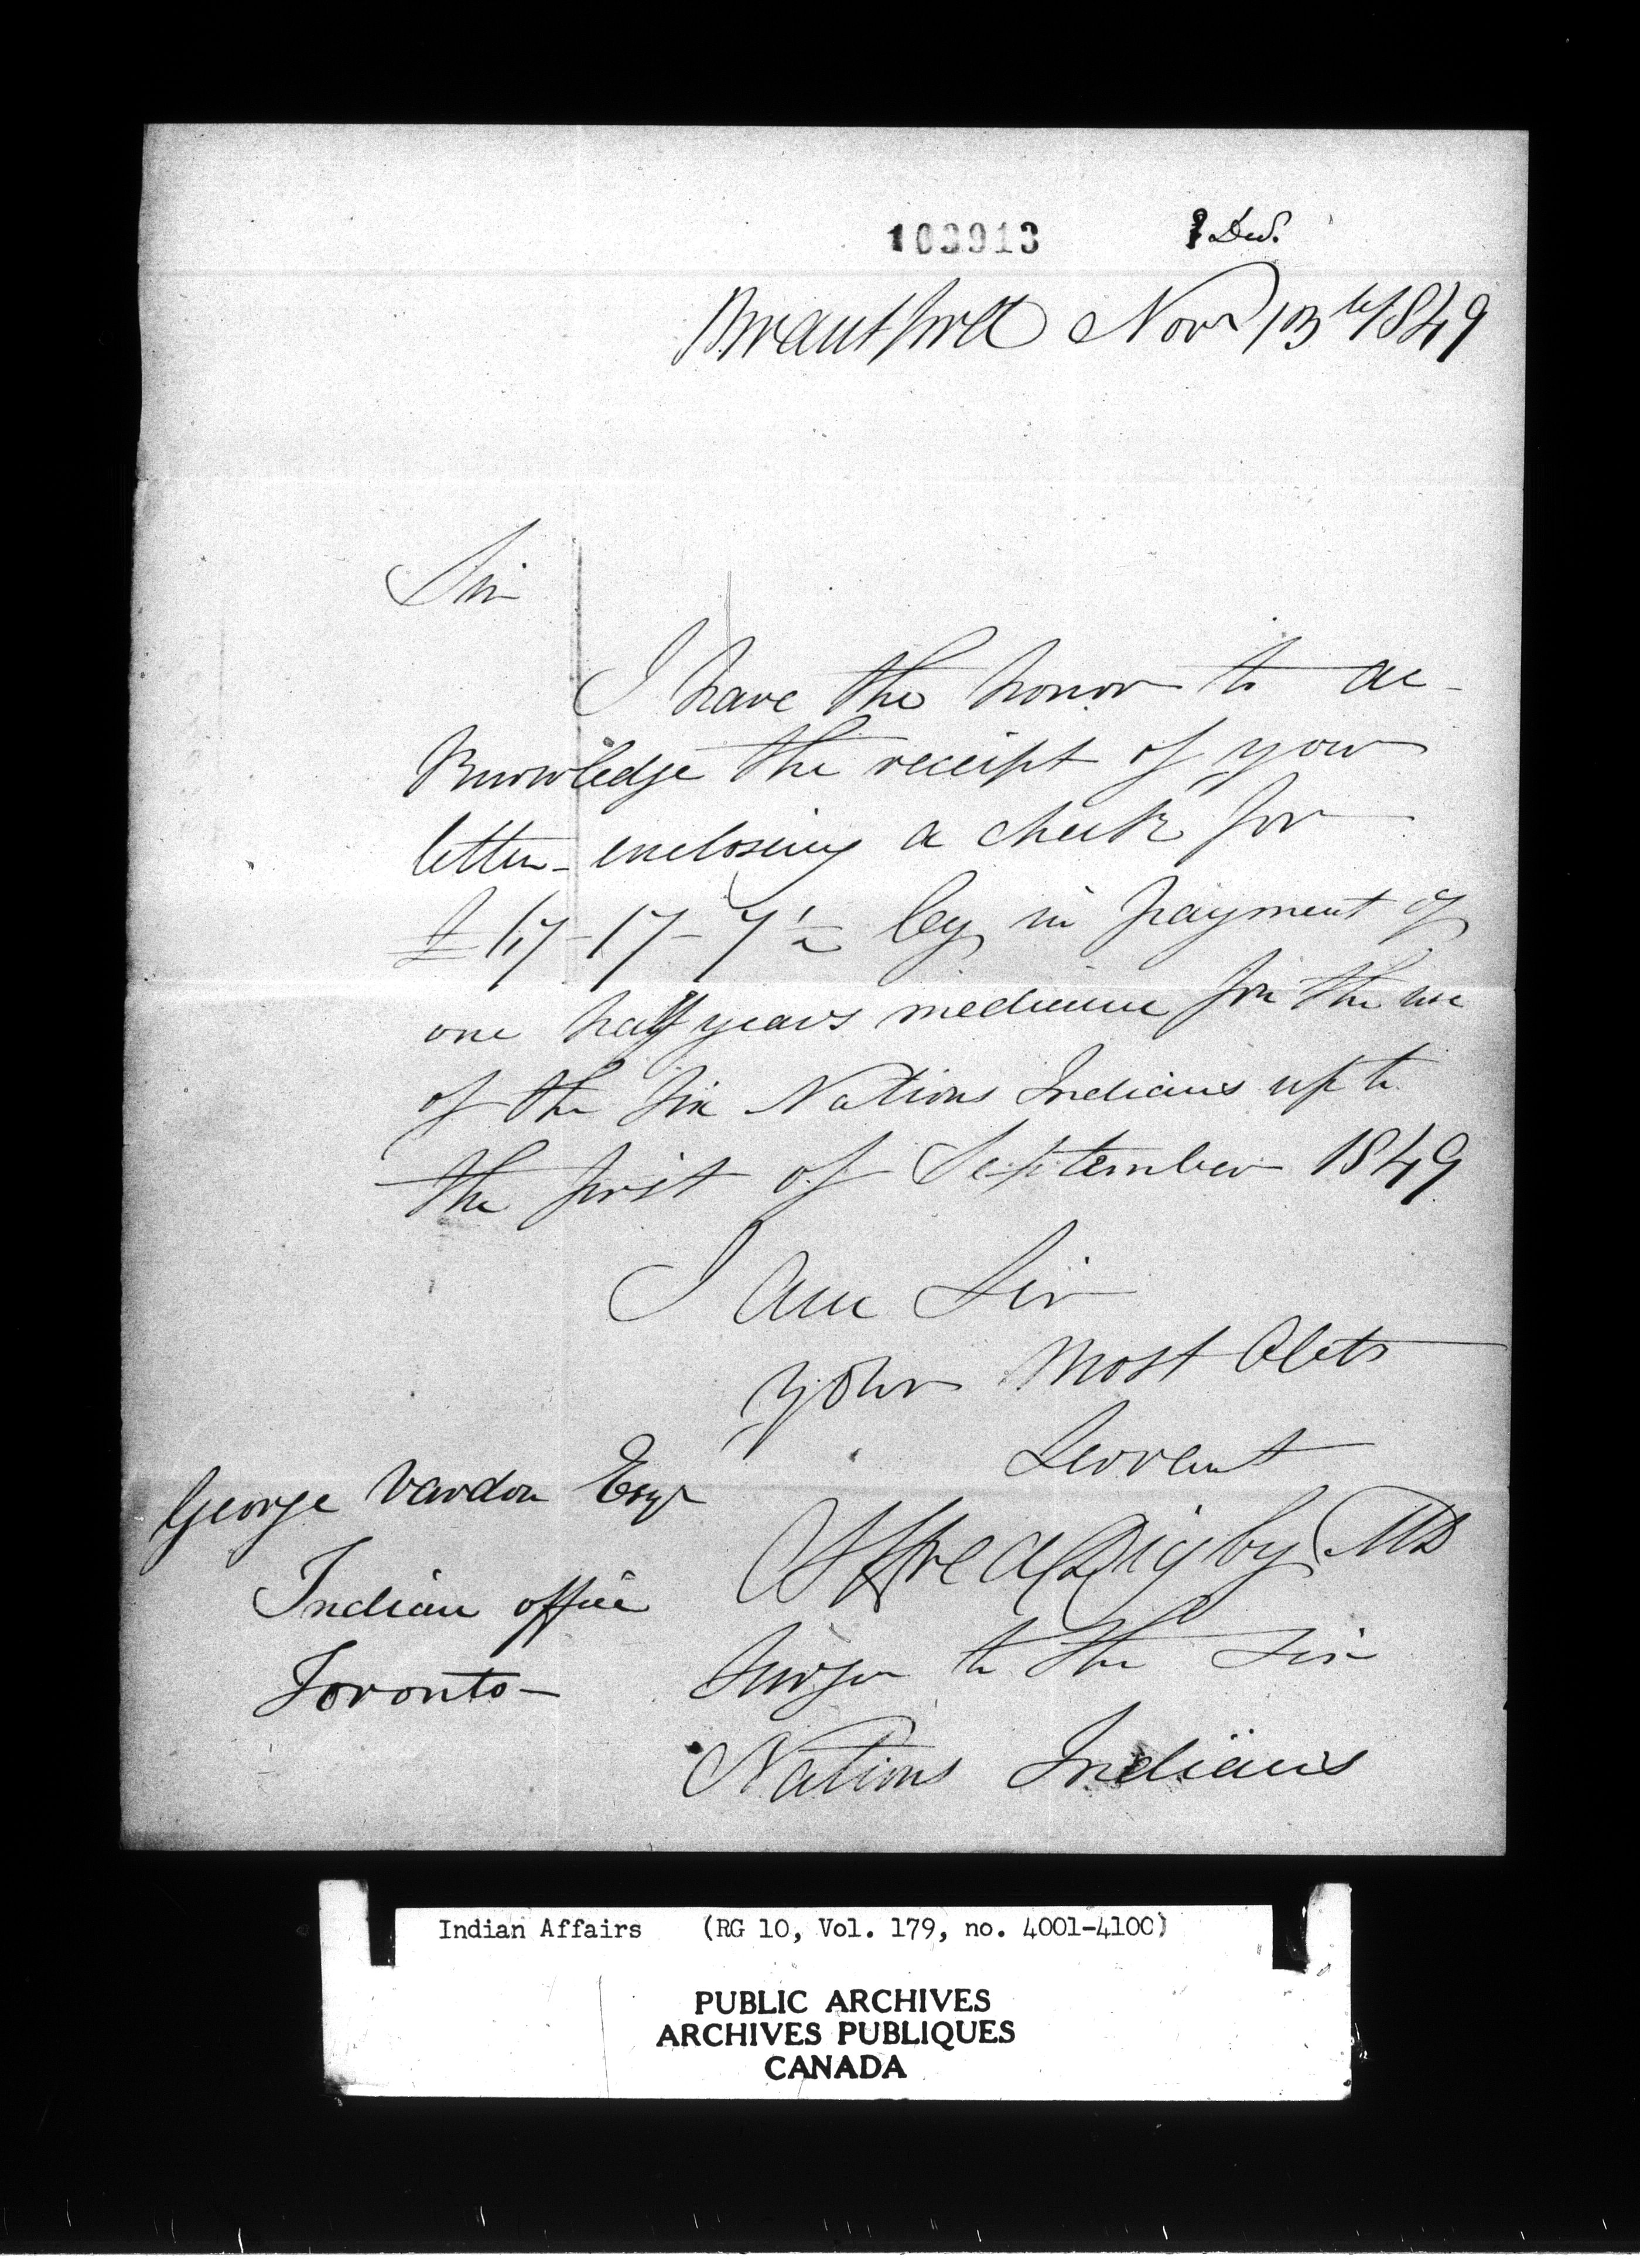 103913
Brantford Novr 13th 1849
Sir
I have the honor to ac-
knowledge the receipt of your
letter enclosing a check for
£17-17-7½ Cy in payment of
one half years medicine for the use
of the Six Nations Indians up to
the first of September 1849
I am Sir
your most Obt
Servant
George Vardon Esqr
Indian office
Toronto-
Alfred Digby MD
Surgn to the Six
Nations Indians
Indian Affairs (RG 10, Vol. 179, no. 4001-4100)
PUBLIC ARCHIVES
ARCHIVES PUBLIQUES
CANADA